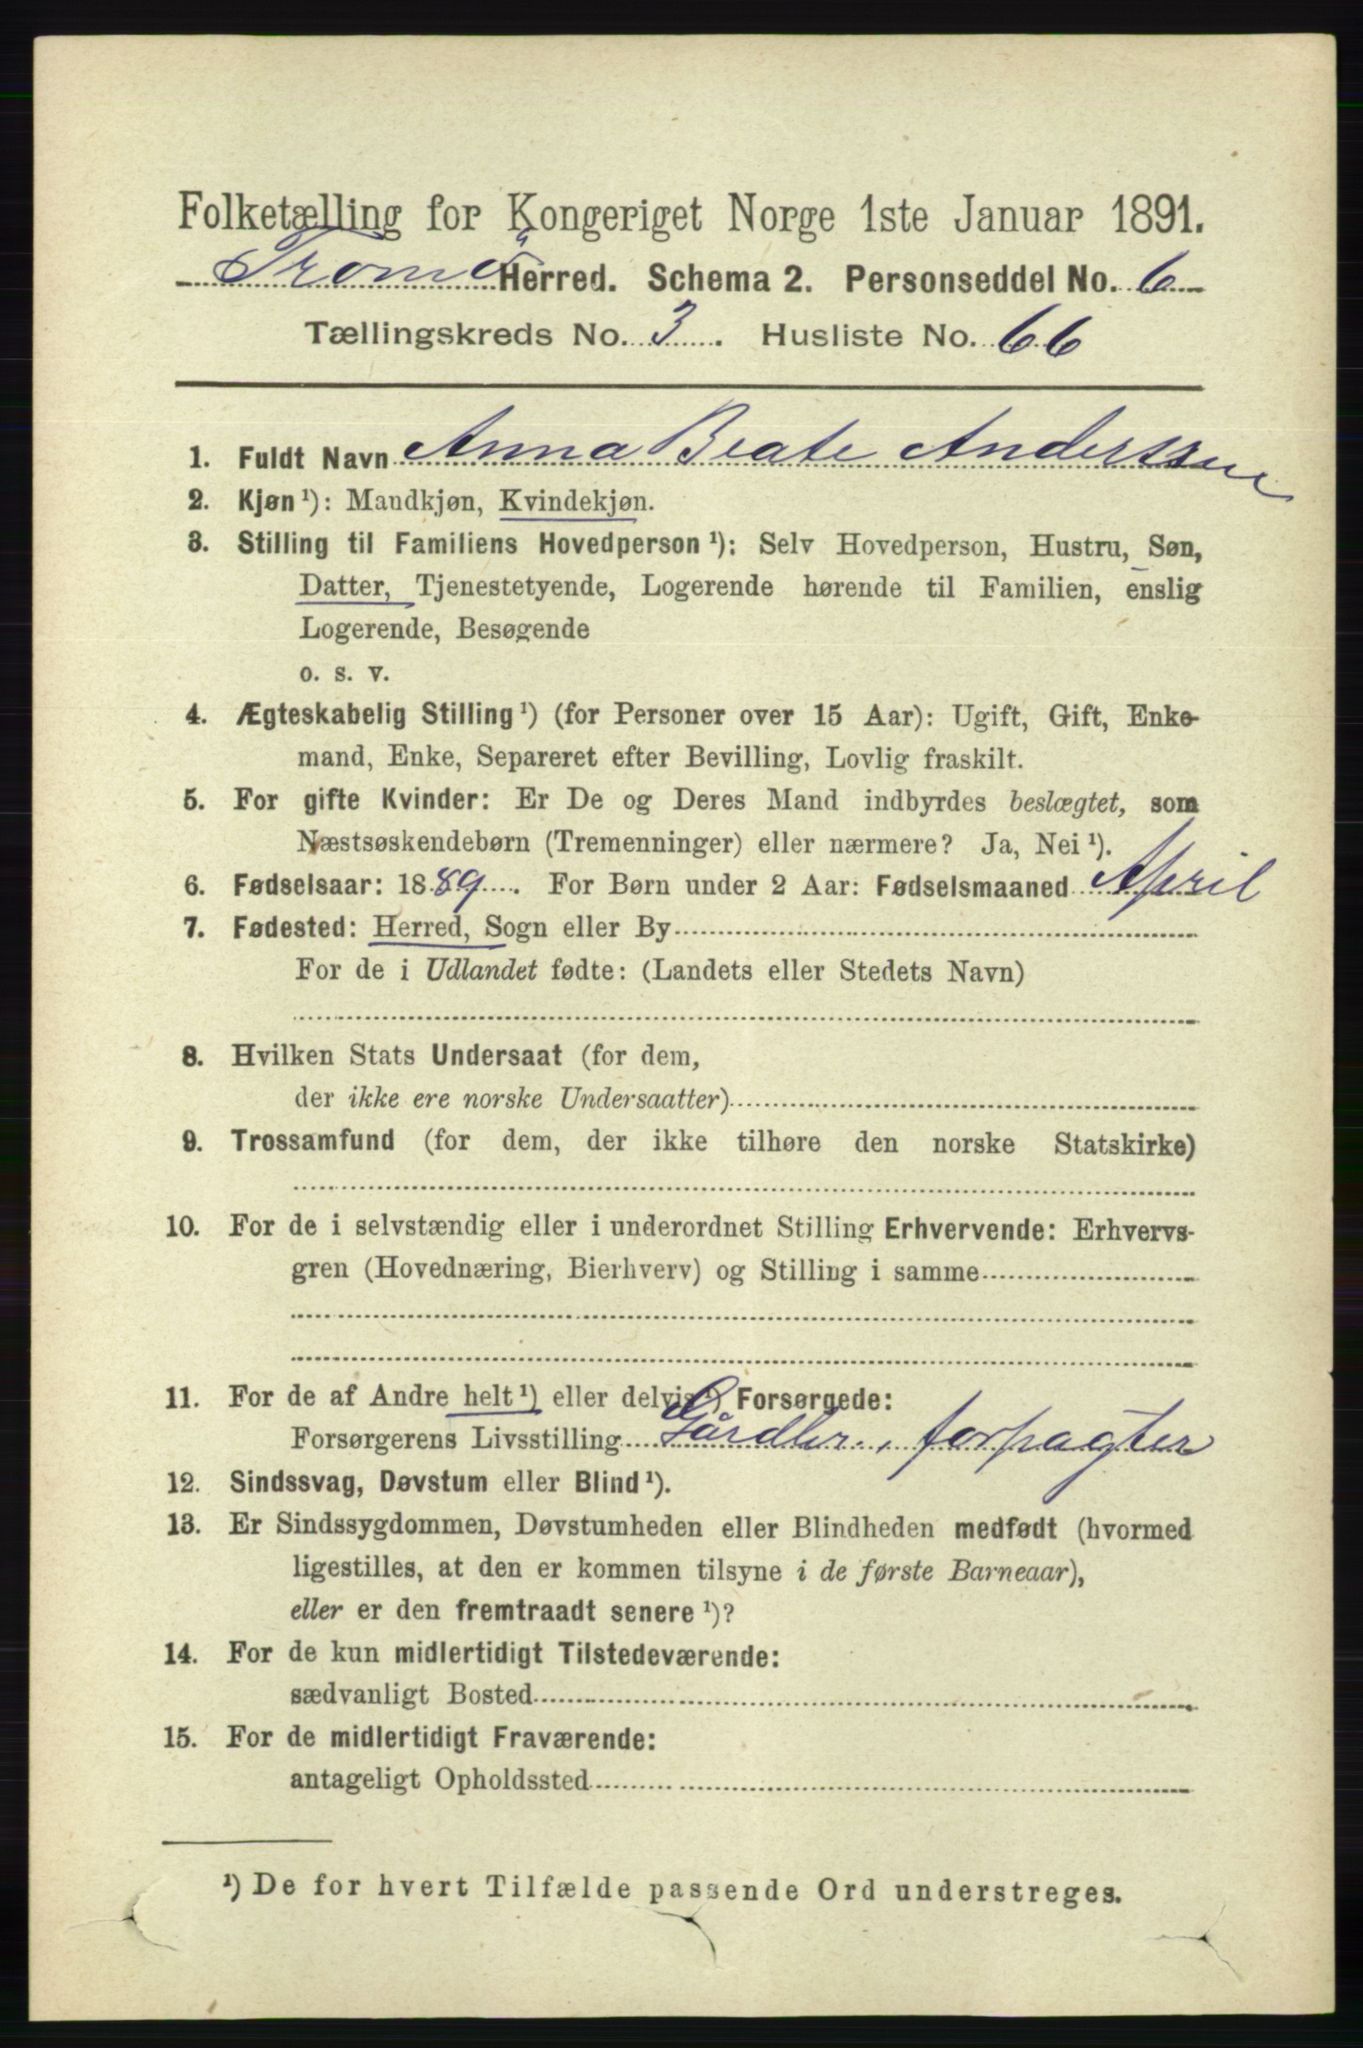 Folketælling for Kongeriget Norge 1ste Januar 1891.
Tromö Herred. Schema 2. Personseddel No. 6
Tællingskreds No. 3. Husliste No. 66
1. Fuldt Navn Anna Beate Anderssen
2. Kjøn ¹): Mandkjøn, Kvindekjøn.
3. Stilling til Familiens Hovedperson ¹): Selv Hovedperson, Hustru, Søn,
Datter, Tjenestetyende, Logerende hørende til Familien, enslig
Logerende, Besøgende
o. s. v.
4. Ægteskabelig Stilling ¹) (for Personer over 15 Aar): Ugift, Gift, Enke-
mand, Enke, Separeret efter Bevilling, Lovlig fraskilt.
5. For gifte Kvinder: Er De og Deres Mand indbyrdes beslægtet, som
Næstsøskendebørn (Tremenninger) eller nærmere? Ja, Nei ¹).
6. Fødselsaar: 1889. For Børn under 2 Aar: Fødselsmaaned April
7. Fødested: Herred, Sogn eller By
For de i Udlandet fødte: (Landets eller Stedets Navn)
8. Hvilken Stats Undersaat (for dem,
der ikke ere norske Undersaatter)
9. Trossamfund (for dem, der ikke tilhøre den norske Statskirke)
10. For de i selvstændig eller i underordnet Stilling Erhvervende: Erhvervs-
gren (Hovednæring, Bierhverv) og Stilling i samme
11. For de af Andre helt ¹) eller delvis ¹) Forsørgede:
Forsørgerens Livsstilling Gårdbr., forpagter
12. Sindssvag, Døvstum eller Blind ¹).
13. Er Sindssygdommen, Døvstumheden eller Blindheden medfødt (hvormed
ligestilles, at den er kommen tilsyne i de første Barneaar),
eller er den fremtraadt senere ¹)?
14. For de kun midlertidigt Tilstedeværende:
sædvanligt Bosted
15. For de midlertidigt Fraværende:
antageligt Opholdssted
¹) De for hvert Tilfælde passende Ord understreges.